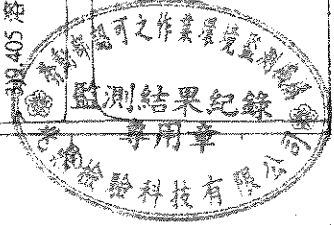 405
勞動部認可之作業環境監測機構
監測結果紀錄
專用章
檢驗科技有限公司